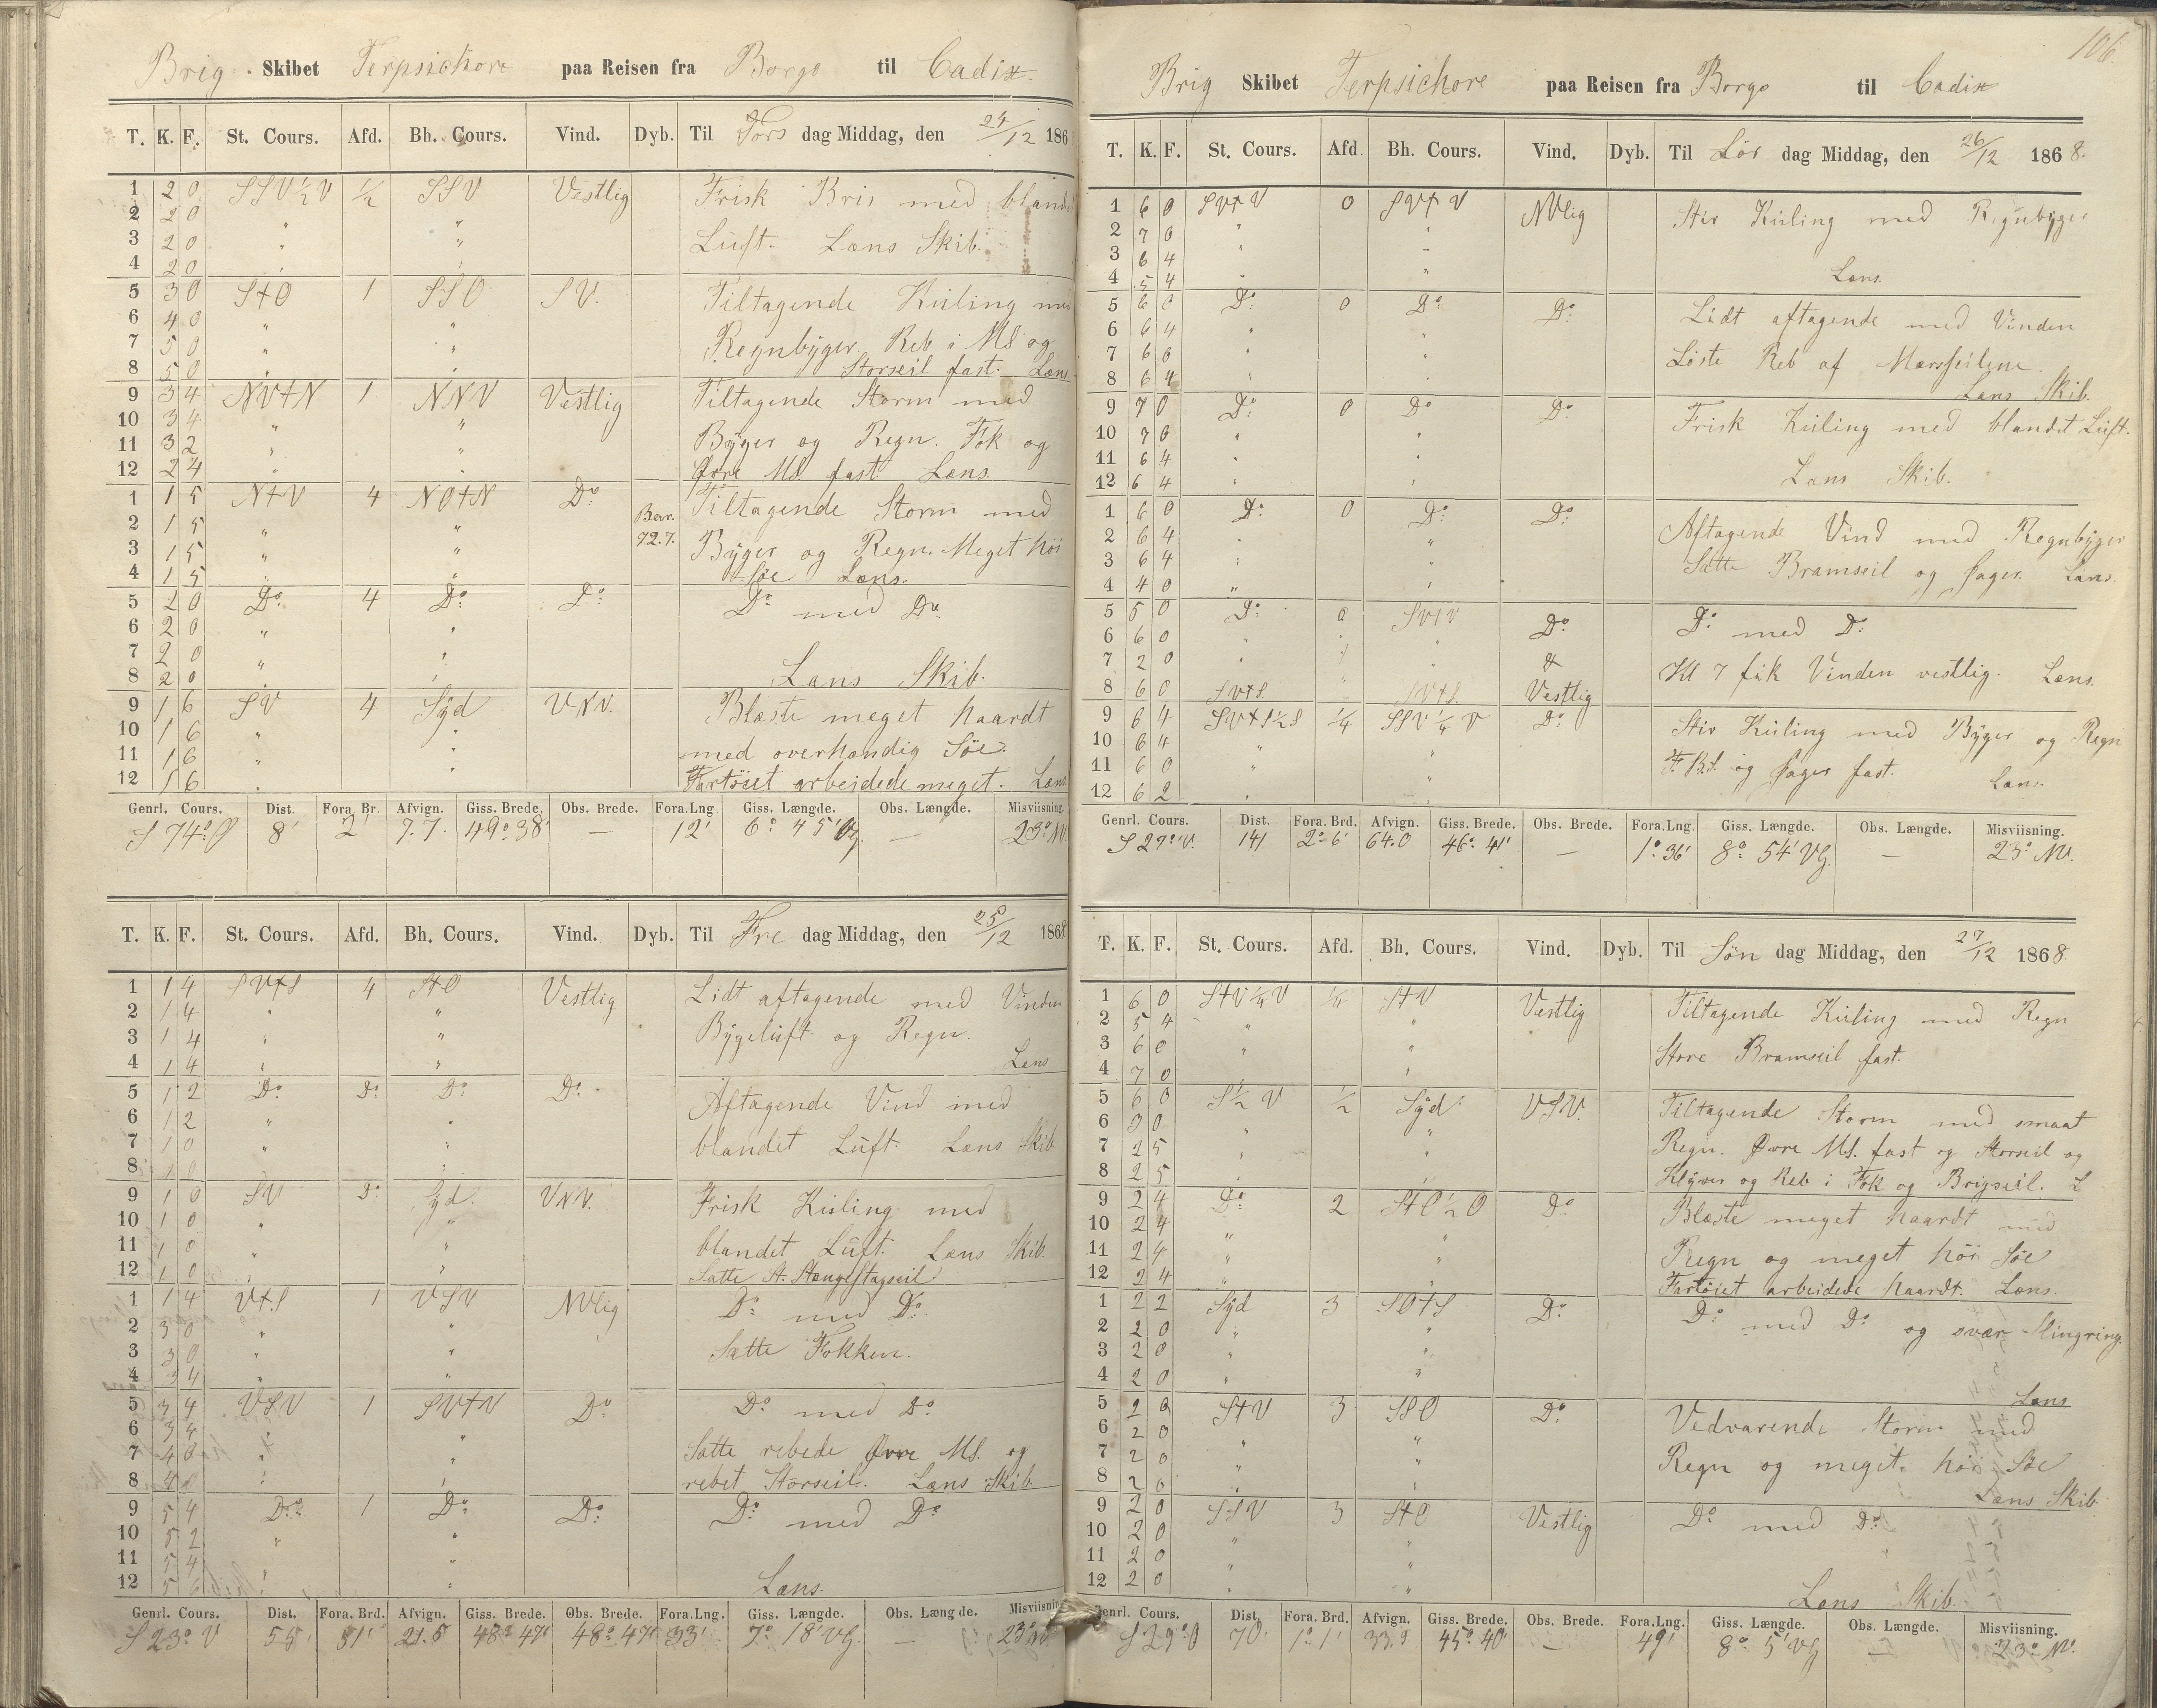 Brig Skibet Terpsichore paa Reisen fra Borgo til Cadix.
T. K. F. St. Cours. Afd. Bh. Cours. Vind. Dyb. Til Tors dag Middag, den 24/12 186
1 2 0 SSV ½ V ½ SSV Vestlig Frisk Bris med bland
2 2 0 " "
3 2 0 " " Luft. Læns Skib.
4 2 0 " "
5 3 0 S t O 1 SSO SV. Tiltagende Kuling med
6 4 0 " "
7 5 0 " " Regnbyger. Reb i MS og
8 5 0 " " Storseil fast. Læns
9 3 4 NV t N 1 NNV Vestlig Tiltagende Storm med
10 3 4 " "
11 3 2 " " Byger og Regn. Fok og
12 2 4 " " Øvre MS. fast. Læns.
1 1 5 N t V 4 NO t N Do Tiltagende Storm med
2 1 5 " " Bar.
3 1 5 " " 72.7. Byger og Regn. Meget høi
4 1 5 " " Søe Læns.
5 2 0 Do 4 Do Do Do med Do
6 2 0 " "
7 2 0 " "
8 2 0 " " Læns Skib.
9 1 6 SV 4 Syd VNV. Blæste meget haardt
10 1 6 " "
11 1 6 " " med overhændig Søe.
12 1 6 " " Fartøiet arbeidede meget. Læns
Genrl. Cours. Dist. Fora. Br. Afvign. Giss. Brede. Obs. Brede. Fora.Lng. Giss. Længde. Obs. Længde. Misviisning.
S 74° O 8' 2' 7.7. 49° 38' — 12' 6° 45' Vg. — 23° NV.
T. K. F. St. Cours. Afd. Bh. Cours. Vind. Dyb. Til Fre dag Middag, den 25/12 1868
1 1 4 SV t S 4 S t O Vestlig Lidt aftagende med Vinden
2 1 4 " "
3 1 4 " " Bygeluft og Regn.
4 1 4 " " Læns
5 1 2 Do Do Do Do Aftagende Vind med
6 1 2 " "
7 1 0 " " blandet Luft. Læns Skib
8 1 0 " "
9 1 0 SV Do Syd VNV. Frisk Kuling med
10 1 0 " "
11 1 0 " " blandet Luft. Læns Skib.
12 1 0 " " Satte St. Stængestagseil
1 1 4 V t S 1 VSV NVlig Do med Do
2 3 0 " "
3 3 0 " " Satte Fokken.
4 3 4 " "
5 3 4 VSV 1 SV t V Do Do med Do
6 3 4 " "
7 4 0 " " Satte rebede Øvre MS. og
8 4 0 " " rebet Storseil. Læns Skib
9 5 4 Do 1 Do Do Do med Do
10 5 2 " "
11 5 4 " "
12 5 6 " " Læns.
Genrl. Cours. Dist. Fora. Brd. Afvign. Giss. Brede. Obs. Brede. Fora.Lng. Giss. Længde. Obs. Længde. Misviisning
S 23° V 55' 51' 21.5 48° 47' 48° 47' 33' 7° 18' VG. — 23° NV
106.
Brig Skibet Terpsichore paa Reisen fra Borgo til Cadix
T. K. F. St. Cours. Afd. Bh. Cours. Vind. Dyb. Til Lør dag Middag, den 26/12 1868.
1 6 0 SV t V 0 SV t V NVlig Stiv Kuling med Regnbyger
2 7 0 " "
3 6 4 " "
4 5 4 " " Læns.
5 6 0 Do 0 Do Do Lidt aftagende med Vinden
6 6 4 " "
7 6 6 " " Løste Reb af Mærsseilene.
8 6 4 " " Læns Skib.
9 7 0 Do 0 Do Do Frisk Kuling med blandet Luft.
10 7 6 " "
11 6 4 " "
12 6 4 " " Læns Skib.
1 6 0 Do 0 Do Do Aftagende Vind med Regnbyger
2 6 4 " "
3 6 4 " " Satte Bramseil og Jager. Læns.
4 4 0 " "
5 5 0 Do 0 SV t V Do Do med Do
6 6 0 " "
7 2 0 " " & Kl 7 fik Vinden vestlig. Læns.
8 6 0 SV t S. " SV t S. Vestlig
9 6 4 SV t S ½ S ¼ SSV ¼ V Do Stiv Kuling med Byger og Regn
10 6 4 " "
11 6 0 " " F. BS. og Jager fast.
12 6 2 " " Læns.
Genrl. Cours. Dist. Fora. Brd. Afvign. Giss. Brede. Obs. Brede. Fora.Lng. Giss. Længde. Obs. Længde. Misviisning.
S 27° V. 141 2° 6' 64.0 46° 41' — 1° 36' 8° 54' VG. — 23° NV.
T. K. F. St. Cours. Afd. Bh. Cours. Vind. Dyb. Til Søn dag Middag, den 27/12 1868.
1 6 0 S t V ¼ V ¼ S t V Vestlig Tiltagende Kuling med Regn
2 5 4 " "
3 6 0 " " Store Bramseil fast.
4 7 0 " "
5 6 0 S ½ V ½ Syd VSV. Tiltagende Storm med smaat
6 3 0 " "
7 2 5 " " Regn. Øvre MS. fast og Storseil og
8 2 5 " " Klyver og Reb i Fok og Brigseil. L
9 2 4 Do 2 S t O ½ O Do Blæste meget haardt med
10 2 4 " "
11 2 4 " " Regn og meget høi Søe
12 2 4 " " Fartøiet arbeidede haardt. Læns.
1 2 2 Syd 3 SO t S Do Do med Do og svær Slingring.
2 2 0 " "
3 2 0 " "
4 2 0 " " Læns
5 2 0 S t V 3 SSO Do Vedvarende Storm med
6 2 0 " "
7 2 0 " " Regn og meget høi Søe
8 2 0 " " Læns Skib.
9 2 0 SSV 3 S t O Vestlig Do med Do
10 2 0 " "
11 2 0 " "
12 2 0 " " Læns Skib.
Genrl. Cours. Dist. Fora. Brd. Afvign. Giss. Brede. Obs. Brede. Fora.Lng. Giss. Længde. Obs. Længde. Misviisning.
S 29° O 70' 1° 1' 33.9 45° 40' — 49' 8° 5' VG — 23° NV.